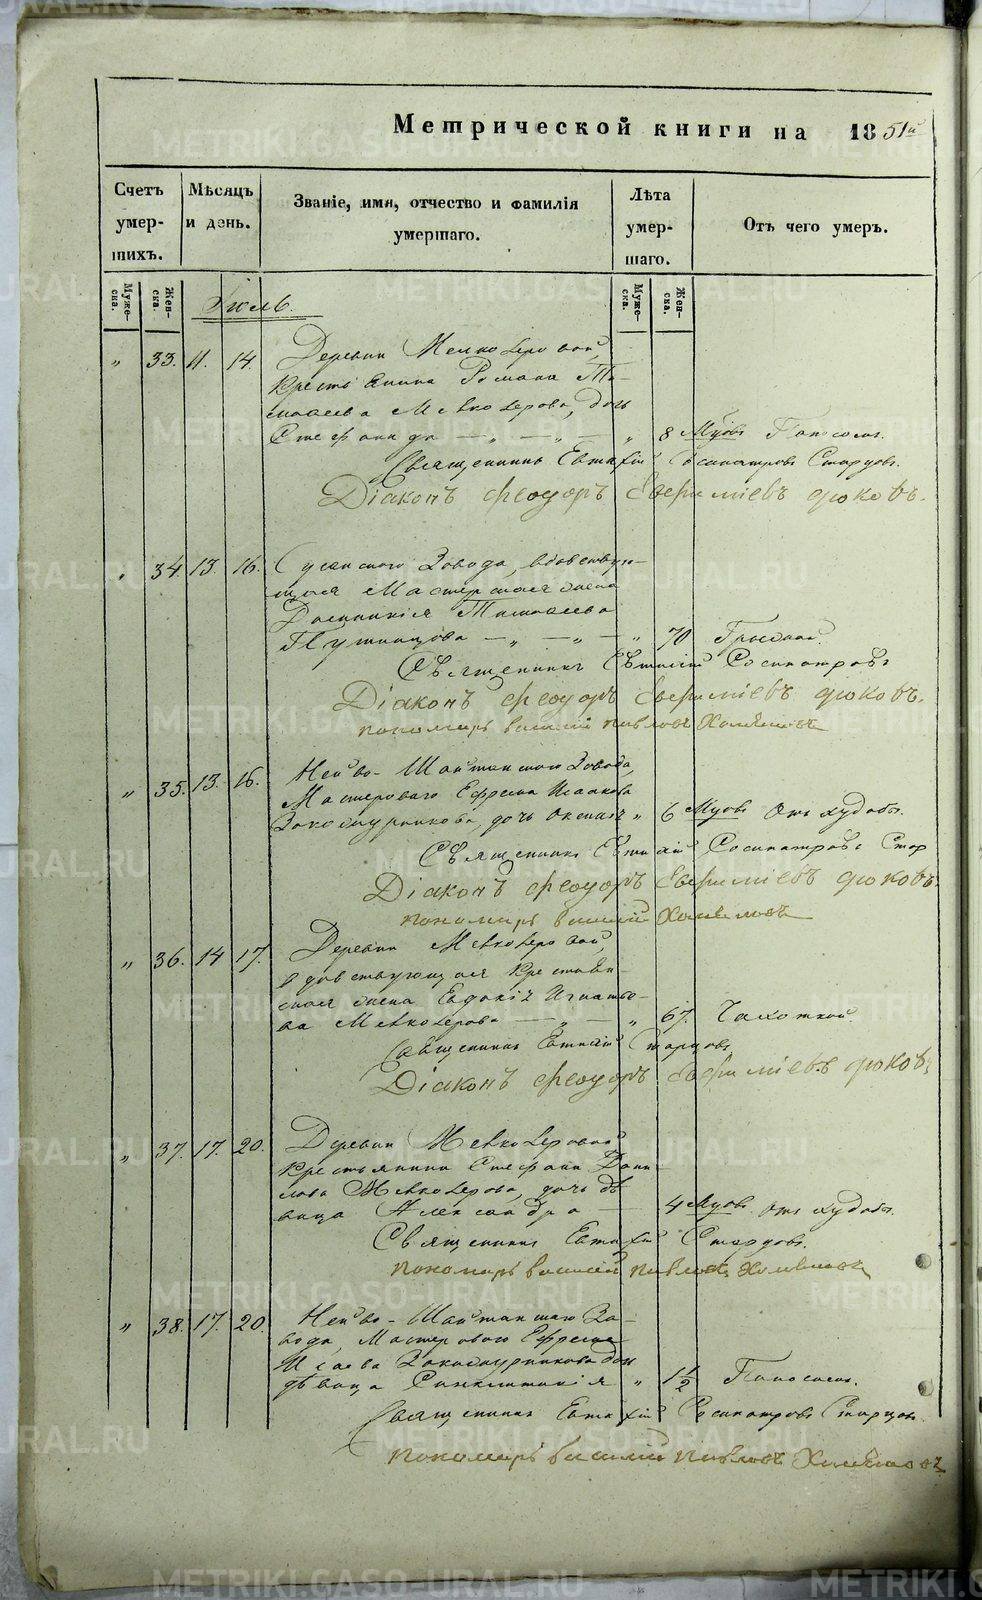 Метрической книги на 1851й
Счетъ умершихъ.
Мѣсяцъ и день.
Званіе, имя, отчество и фамилія умершаго.
Лѣта умершаго.
Отъ чего умеръ.
Мужеска.
Женска.
Мужеска.
Женска.
Іюль.
„ 33. 11. 14. Деревни Мелкозеровой,
Крестьянина Романа Ти-
мофеева Мелкозерова, дочь
Стефанида — „ — „ — „ 8 Мѣсов Поносомъ.
Священникъ Евтихій Сосипатровъ Старцовъ.
Діаконъ Феодоръ
„ 34. 13. 16. Сусанского Завода, вдовствую-
щая Мастерская жена
Тимофеева
Путинцова — „ — „ — „ 70 Грыжей.
Священникъ Евтихій Сосипатровъ
Діаконъ Феодоръ
пономарь Василій Павловъ
„ 35. 13. 16. Нейво-Шайтанского Завода,
Мастероваго Ефрема Исакова
дочь „ 6 Отъ худобы.
Священникъ Евтихій Сосипатровъ Стар
Діаконъ Феодоръ
пономарь Василій
„ 36. 14 17. Деревни Мелкозеровой,
вдовствующая Крестьян-
ская жена Евдокія Игнатье-
ва Мелкозерова — „ — „ 67. Чахоткой.
Священникъ Евтихій Старцовъ
Діаконъ Феодоръ
„ 37. 17. 20. Деревни Мелкозеровой
Крестьянина Стефана Дани-
лова Мелкозерова, дочь дѣ-
вица Александра — 4 Отъ худобы.
Священникъ Евтихій Старцовъ.
пономарь Василій Павловъ
„ 38. 17. 20. Нейво-Шайтанского За-
вода, Мастероваго Ефрема
Исаева дочь
дѣвица Синклитикія „ 1 1/2 Поносомъ.
Священникъ Евтихій Сосипатровъ Старцовъ.
пономарь Василій Павловъ
METRIKI.GASO-URAL.RU